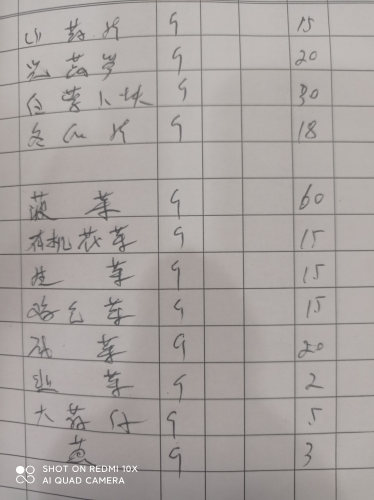 山药片 斤 15
光莴笋 斤 20
白萝卜块 斤 30
冬瓜片 斤 18
菠菜 斤 60
有机花菜 斤 15
生菜 斤 15
鸡毛菜 斤 15
菜 斤 20
韭菜 斤 2
大蒜 斤 5
葱 斤 3
SHOT ON REDMI 10X
AI QUAD CAMERA